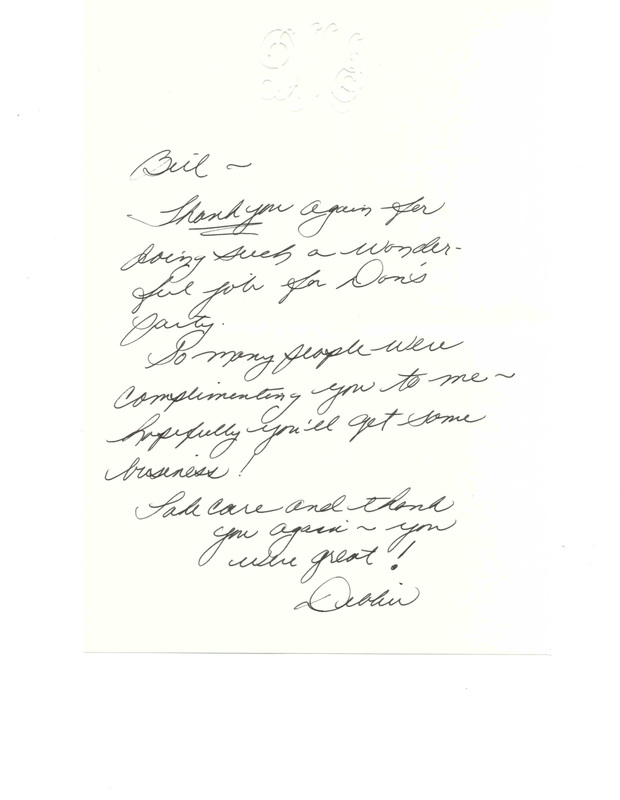 Bill ~
Thank you again for
doing such a wonder-
ful job for Don's
party.
So many people were
complimenting you to me ~
hopefully you'll get some
business!
Take care and thank
you again ~ you
were great!
Debbie